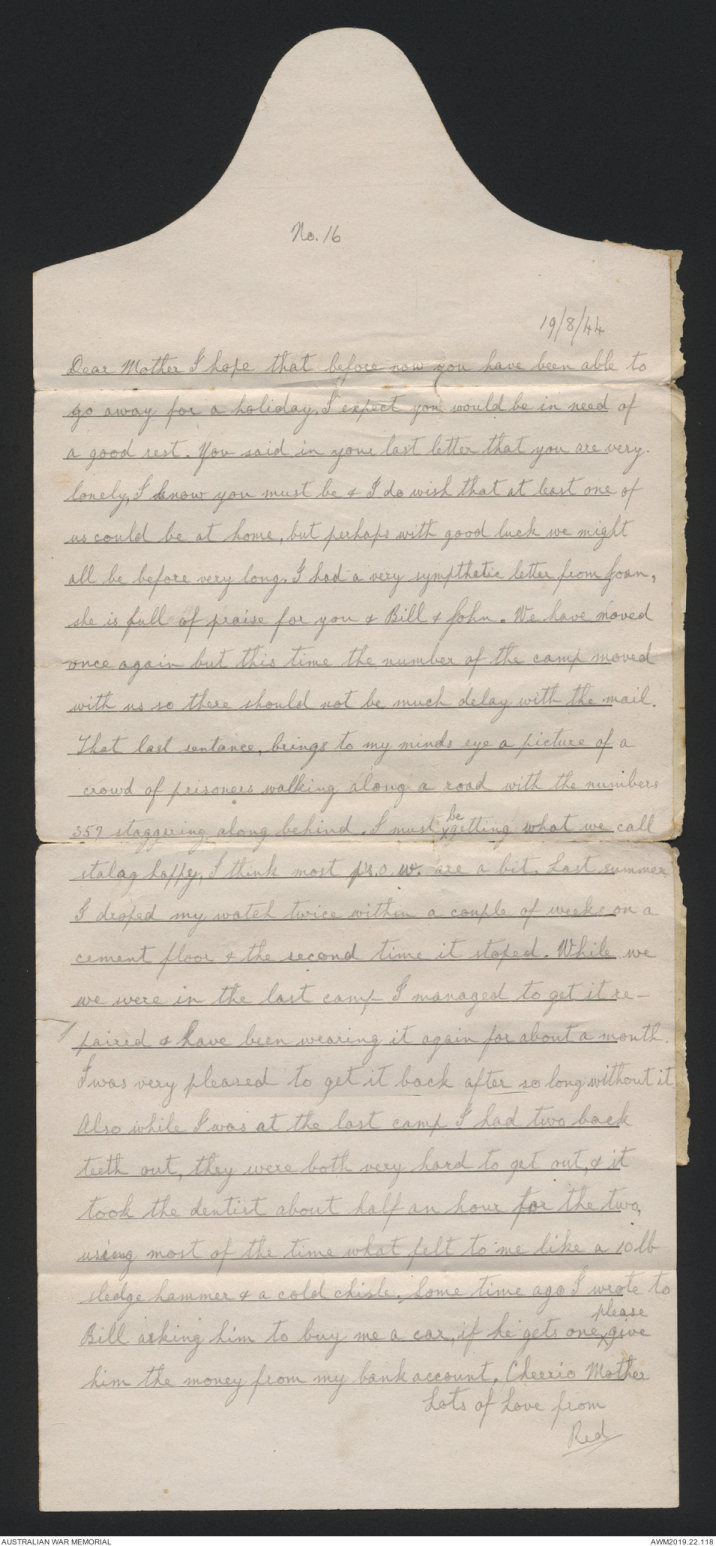 No. 16
19/8/44
Dear Mother I hope that before now you have been able to
go away for a holiday, I expect you would be in need of
a good rest. You said in your last letter that you are very
lonely, I know you must be & I do wish that at least one of
us could be at home, but perhaps with good luck we might
all be before very long. I had a very sympthetic letter from Joan,
she is full of praise for you & Bill & John. We have moved
once again but this time the number of the camp moved
with us so there should not be much delay with the mail.
That last sentance, brings to my minds eye a picture of a
crowd of prisoners walking along a road with the numbers
357 staggering along behind. I must be getting what we call
stalag happy, I think most p's.o.w. are a bit. Last summer
I droped my watch twice within a couple of weeks on a
cement floor & the second time it stoped. While we
we were in the last camp I managed to get it re-
paired & have been wearing it again for about a month.
I was very pleased to get it back after so long without it
Also while I was at the last camp I had two back
teeth out, they were both very hard to get out, & it
took the dentist about half an hour for the two,
using most of the time what felt to me like a 10 lb
sledge hammer & a cold chisle. Some time ago I wrote to
Bill asking him to buy me a car, if he gets one, please give
him the money from my bank account. Cheerio Mother
Lots of Love from
Red
AUSTRALIAN WAR MEMORIAL
AWM2019.22.118